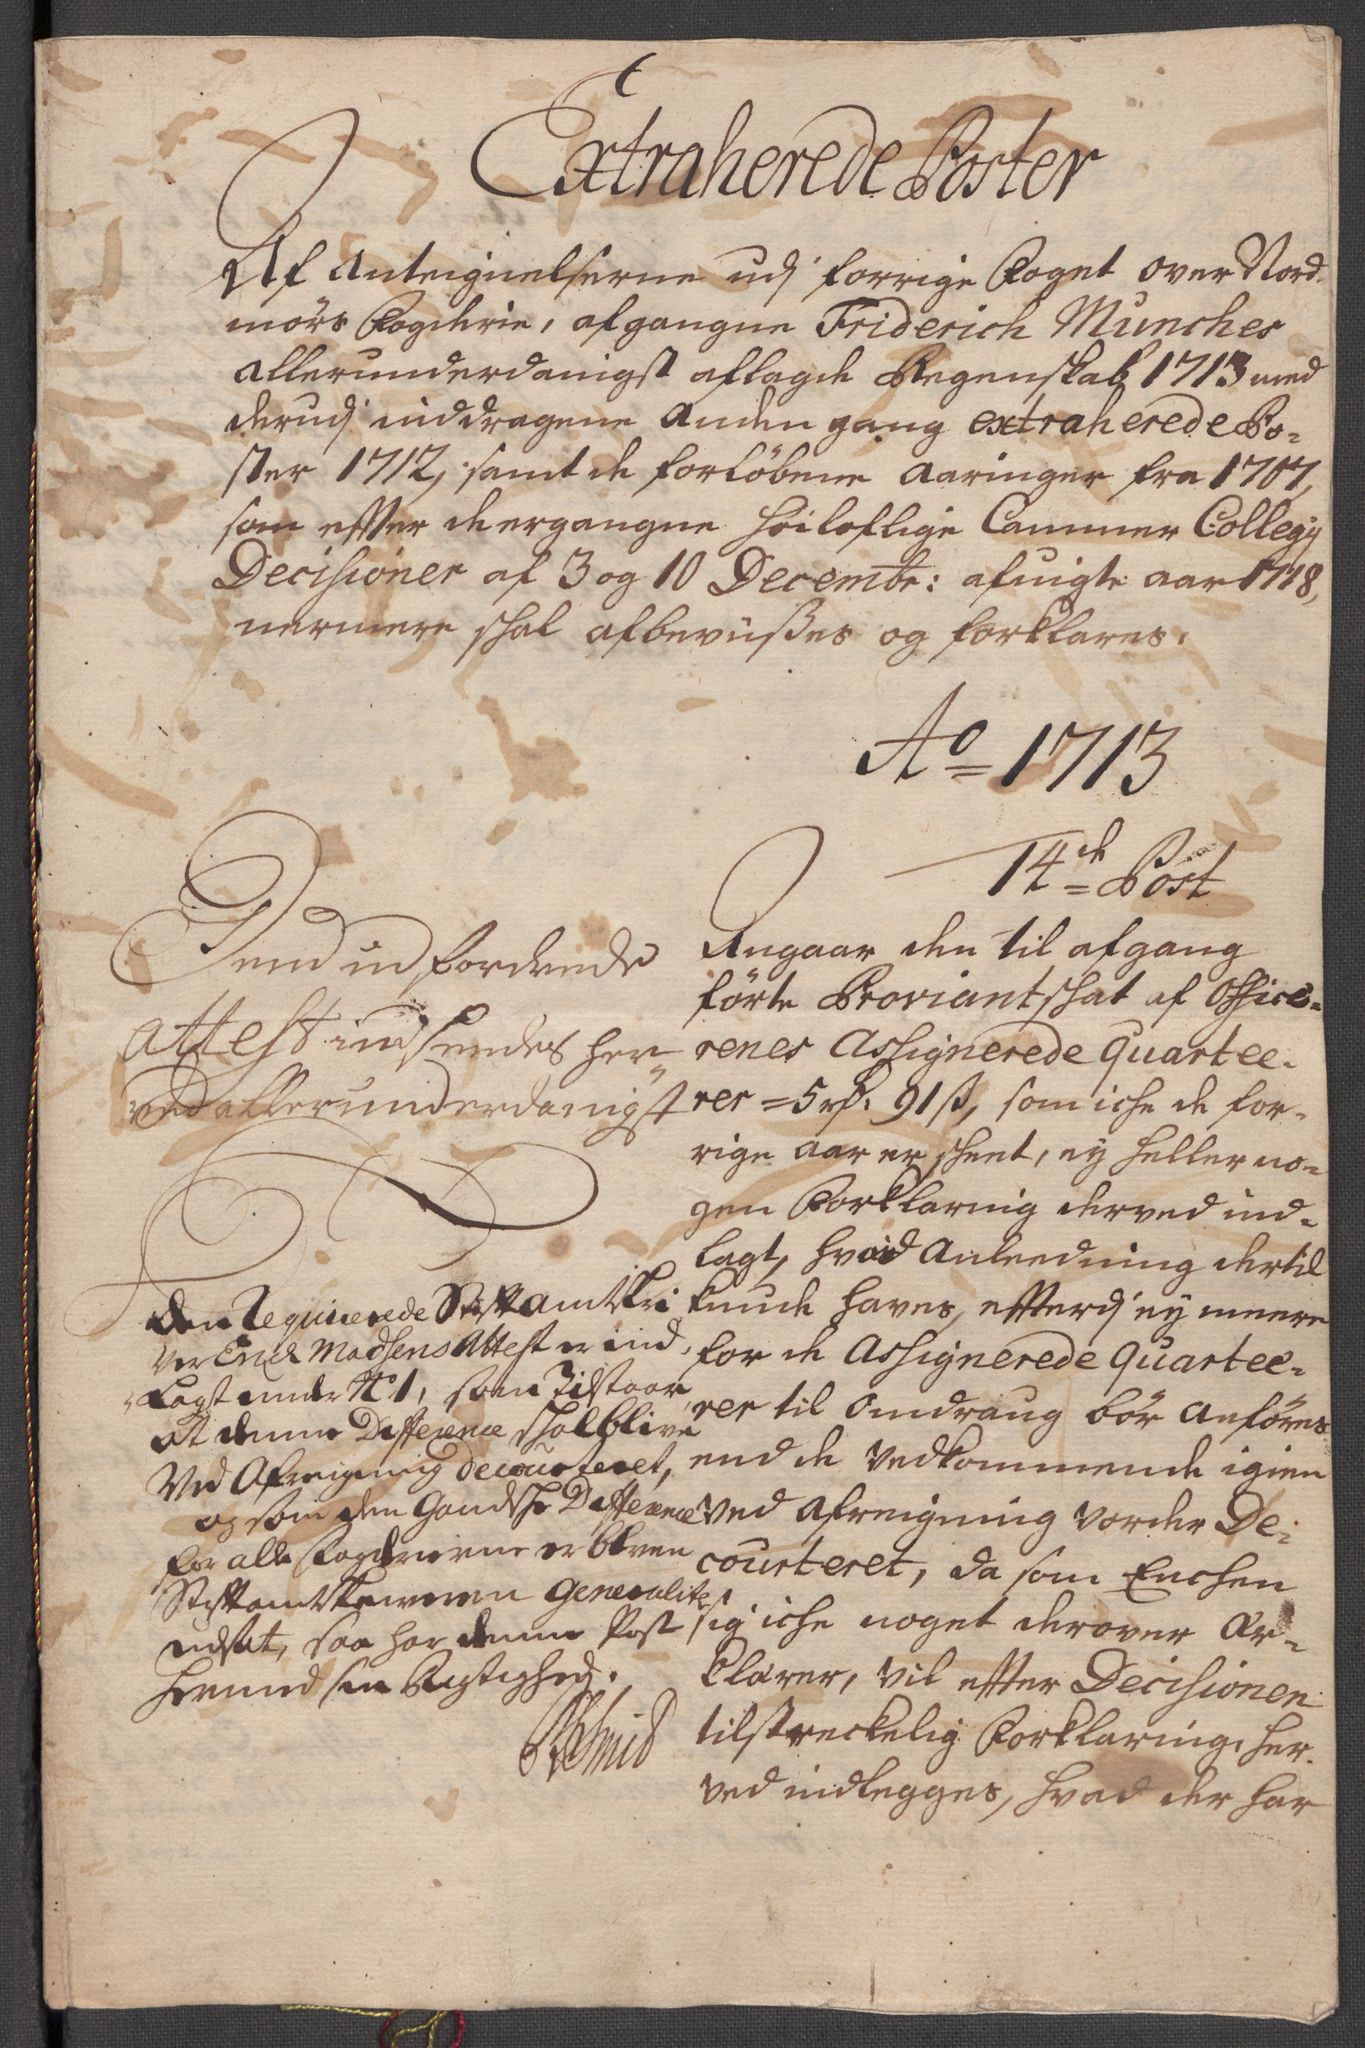 Extraherede Poster
Af Anteignelserne udj forrige Foget over Nord
mörs Fogderie, afgangne Friderich Munches
allerunderdanigst aflagde Regenskab 1713 med
derudj inddragene anden gang extraherede Po-
ster 1712, samt de forlöbene aaringer fra 1707,
som efter de ergangne höiloflige Cammer Collegij
Decisioner af 3 og 10 Decembr: afuigte aar 1718,
nermere skal afbevisses og forklares.
Ao 1713
14de Post
Angaar den til afgang
förte Proviantskat af Office-
renes Assignerede quartee-
rer = 5 rd. 91 ß, som iche de for-
rige aar er skeet, ej heller no-
gen Forklaring derved ind-
lagt, hvad Anleedning dertil
kunde haves, efterdj ej meere
for de Assignerede quartee-
rer til omdraug bör anföres
end de vedkommende igien
ved afreigning vorder De-
courteret, da som Enchen
sig iche noget derover er-
klarer, vil efter Decisionen
tilstreckelig Forklaring her-
ved indlegges, hvad der har
Den indfordrede
Attest indsendes her
ved allerunderdanigst
Den requirerede Stiftamtskri
ver Erick Madsens Attest er ind
lagt under No 1, som tilstaar
at denne Difference skal blive
Ved Afreigning decourteret,
og som den Gandske Difference
for alle Fogderierne er bleven
Stiftamtskriveren Generaliter
udsat, saa har denne Post
hermed sin Rigtighed.